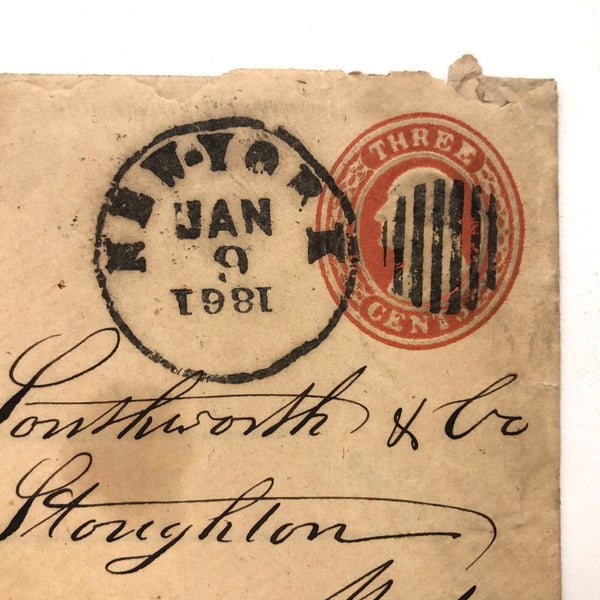 NEW-YORK
JAN
6
1861
THREE
CENTS
Southworth & Co
Stoughton